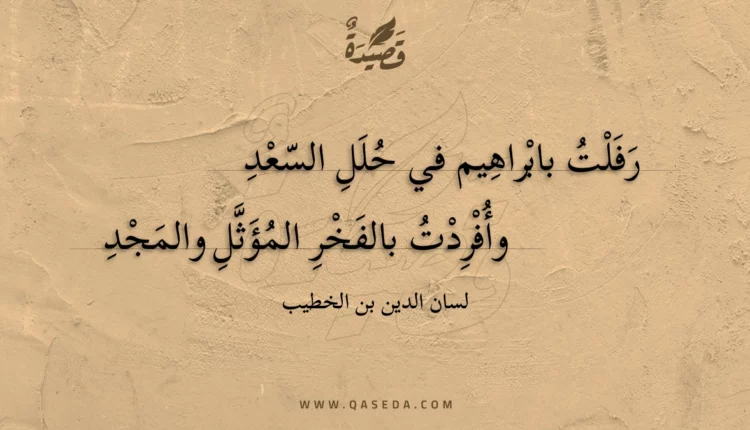 قَصِيْدَةٌ
رَفَلْتُ بابْراهِيم في حُلَلِ السّعْدِ
وأُفْرِدْتُ بالفَخْرِ المُؤَثَّلِ والمَجْدِ
لسان الدين بن الخطيب
WWW.QASEDA.COM